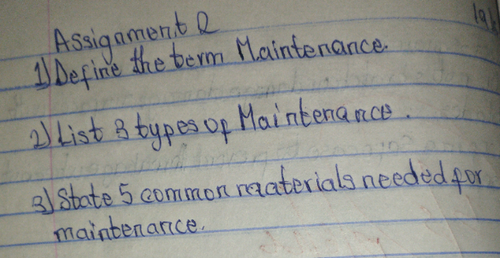 Assignment 2
1) Define the term Maintenance.
2) List 3 types of Maintenance.
3) State 5 common materials needed for
maintenance.